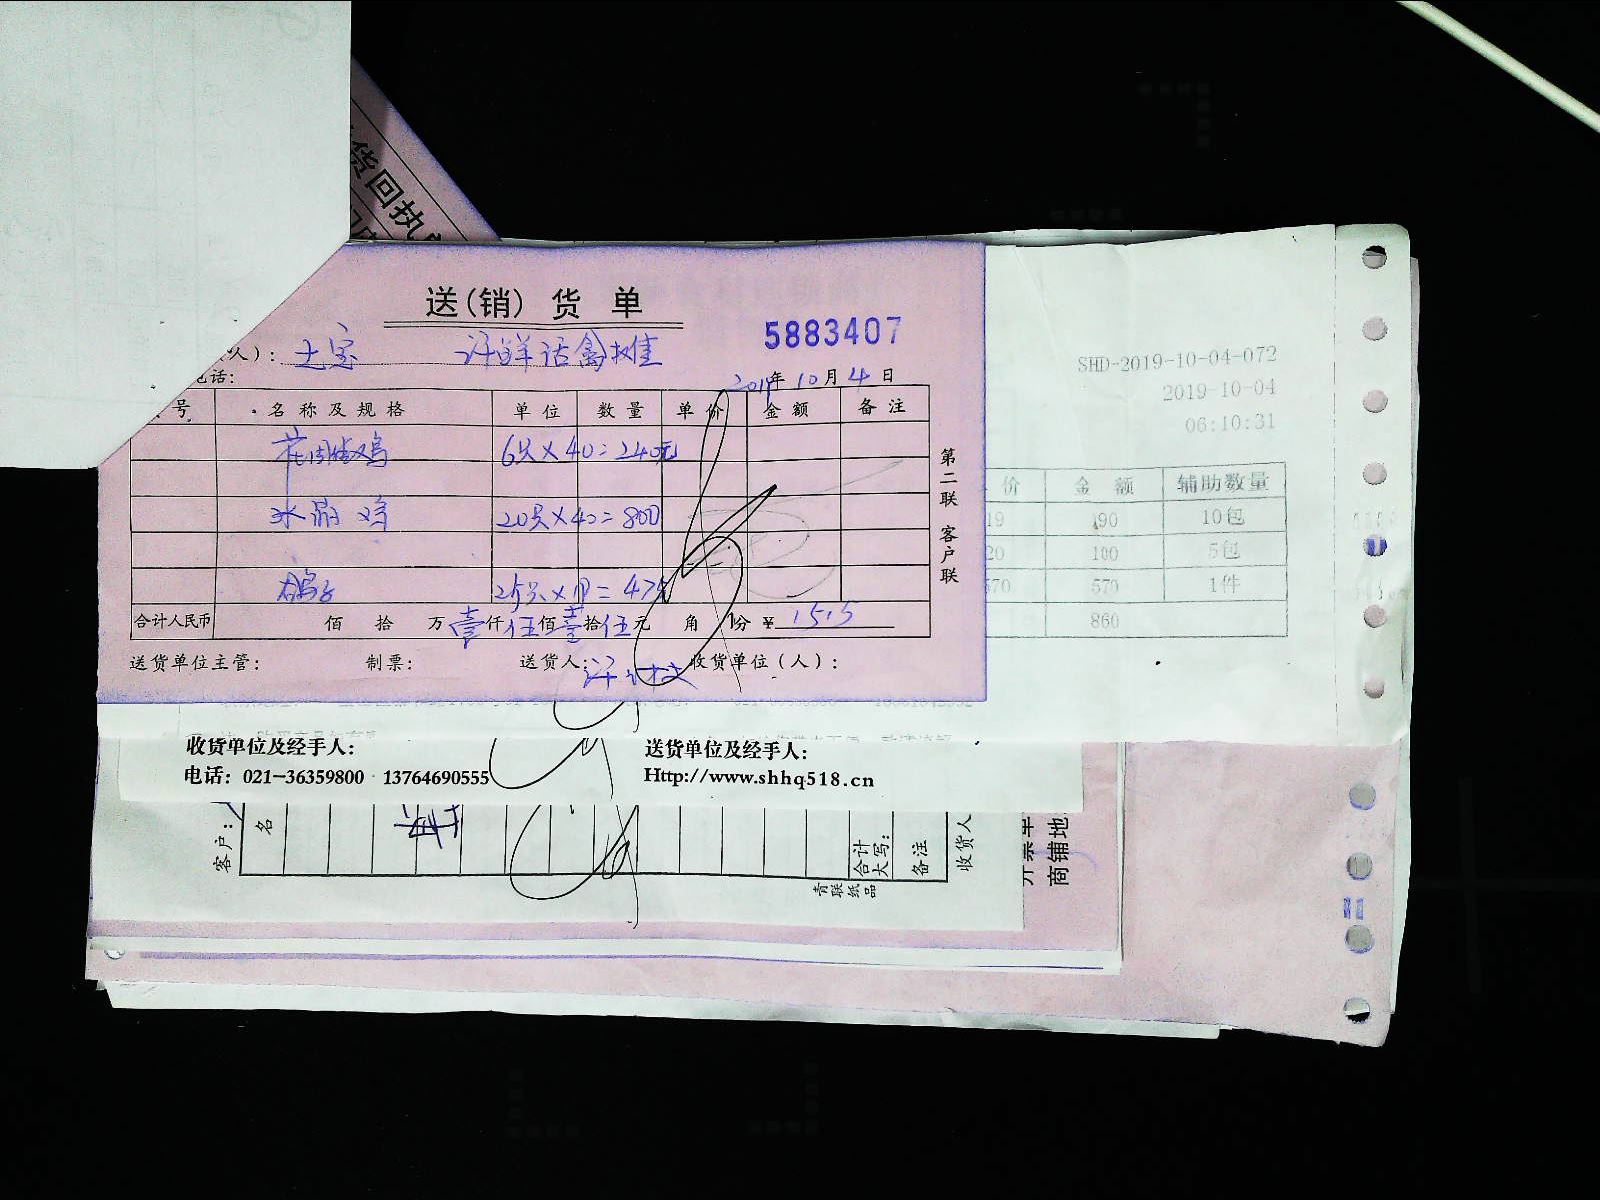 货回执
送(销) 货 单
5883407
人): 土宝 汗鲜活禽摊
电话:
2019年 10月 4日
号 名称及规格 单位 数量 单价 金额 备注
6只×40=240元
水晶鸡 20只×40=800
鸽子 25只×19=475
合计人民币 佰 拾 万壹仟伍佰壹拾伍元 角 分 ¥ 1515
送货单位主管: 制票: 送货人: 收货单位(人):
第二联 客户联
SHD-2019-10-04-072
2019-10-04
06:10:31
价 金 额 辅助数量
19 190 10包
20 100 5包
570 570 1件
860
收货单位及经手人: 送货单位及经手人:
电话: 021-36359800 13764690555 Http://www.shhq518.cn
客户:
名
合计大写:
备注
收货人
青联纸品
商铺地